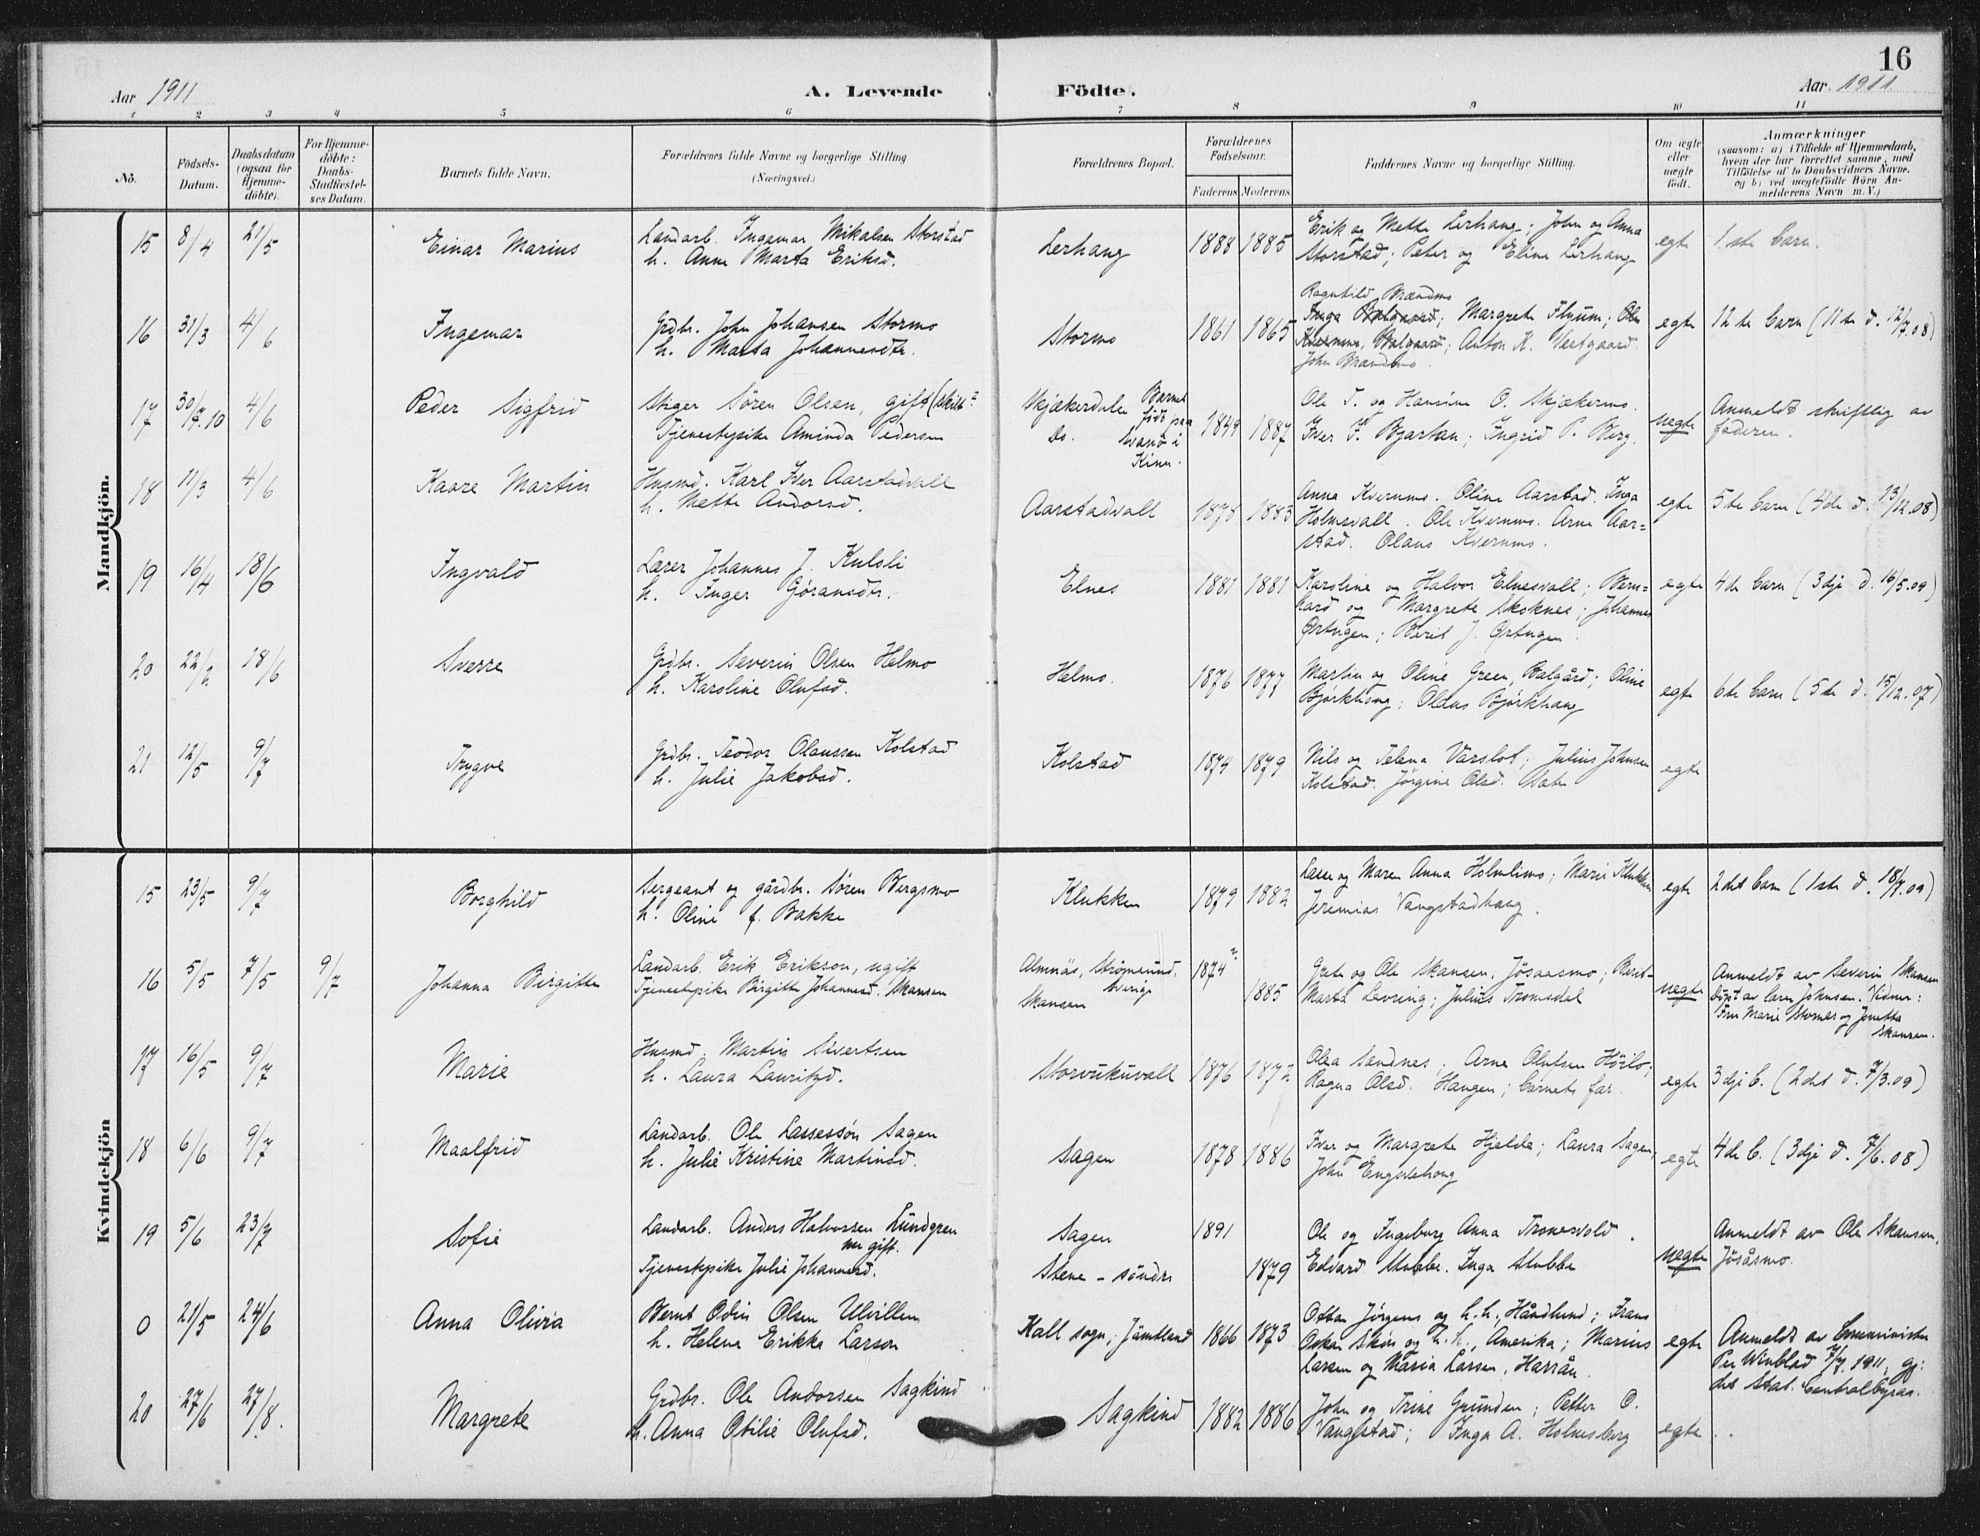 16
Aar 1911
A. Levende Födte.
Aar 1911
1 2 3 4 5 6 7 8 9 10 11
No.
Födsels-Datum.
Daabsdatum (ogsaa for Hjemme-döbte).
For Hjemme-döbte: Daabs-Stadfæstel-ses Datum.
Barnets fulde Navn.
Forældrenes fulde Navne og borgerlige Stilling (Næringsvei.)
Forældrenes Bopæl.
Forældrenes Födselsaar.
Faderens Moderens
Faddernes Navne og borgerlige Stilling.
Om ægte eller uægte födt.
Anmærkninger
(saasom: a) i Tilfælde af Hjemmedaab, hvem der har forrettet samme, med Tilföielse af to Daabsvidners Navne, og b) ved uægtefödte Börn An-melderens Navn m. V.)
Mandkjön.
15 8/4 21/5 Einar Marius Landarb. Ingemar Mikalsen Storstad Lerhaug 1888 1885 Erik og Mette Lerhaug; John og Anna egte 1ste barn.
h. Anna Marta Eriksd. Storstad; Peter og Eline Lerhaug
Ragnhild Brændmo
16 31/3 4/6 Ingemar Grdbr. John Johansen Stormo Stormo 1861 1865 Inga Balgaard; Margrete Flyum; Ole egte 12te barn (11te d. 12/7.08)
h. Marta Johannesdtr. Kvernmo, Balgaard; Anton K. Vestgaard.
John Brændmo.
17 30/7.10 4/6 Peder Sigfrid Stiger Sören Olsen, gift (skilt? Skjækerdalen Barnet 1849 1887 Ole T. og Hansine O. Skjækermo. uegte Anmeldt skriftlig av
Tjenestepike Aminda Pedersen Do. födt paa Svanö i Kinn. Iver F. Bjartan; Ingrid P. Berg. faderen.
18 11/3 4/6 Kaare Martin Husmd. Karl Iver Aarstadvall Aarstadvall 1878 1883 Anna Kvernmo. Oline Aarstad. Inga egte 5te barn (4de d. 13/12.08)
h. Mette Andorsd. Holmsvall. Ole Kvernmo. Arne Aar=
stad. Olaus Kvernmo.
19 16/4 18/6 Ingvald Lærer Johannes J. Kulsli Elnes 1881 1881 Karoline og Halvor Elnesvall; Bern= egte 4de barn (3dje d. 16/5.09)
h. Inger Göransdtr. hard og Margrete Skoknes; Johannes
Ørtugen; Berit J. Ørtugen.
20 22/2 18/6 Sverre Grdbr. Severin Olsen Helmo Helmo. 1876 1877 Martin og Oline Green, Balgård; Oline egte 6te barn (5te d. 15/12.07)
h. Karoline Olufsd. Björkhaug; Olaus Björkhaug
21 12/5 9/7 Trygve Grdbr. Teodor Olaussen Kolstad Kolstad 1874 1879 Nils og Telena Varslot; Julius Johnsen egte
h. Julie Jakobsd. Kolstad. Jörgine Olsd.
Kvindekjön
15 23/5 9/7 Borghild Sergeant og gårdbr. Sören Bergsmo Klukken 1879 1882 Lasse og Maren Anna Holmlimo; Marie Klukken egte 2det barn (1ste d. 18/7.09)
h. Oline f. Bakke Jeremias Vangstadhaug.
16 5/5 7/5 9/7 Johanna Birgitte Landarb. Erik Erikson, ugift Almnäs, Strömsund, Sverige 1874? Grete og Ole Skansen, Jösaasmo; Berit- uegte Anmeldt av Severin Skansen
Tjenestepike Birgitte Johannesd. Skansen Skansen 1885 Marta Levring; Julius Tromsdal Döpt av Caren Johnsen. Vidner:
Fru Marie Stomer og Jonetta
Skansen.
17 16/5 9/7 Marie Husmd. Martin Sivertsen Storvukuvall 1876 1872 Olea Sandnes; Arne Olufsen Höilo; egte 3dje b. (2det d. 7/3.09)
h. Laura Lauritzd. Ragna Olsd. Haugen; barnets far.
18 6/6 9/7 Maalfrid Landarb. Ole Lassessön Sagen Sagen 1878 1886 Iver og Margrete Hjelde; Laura Sagen, egte 4de b. (3dje d. 7/6.08)
h. Julie Kristine Martinsd. John Engstehaug
19 5/6 23/7 Sofie Landarb. Anders Halvorsen Lundgren Sagen 1891 Ole og Ingeborg Anna Tronesvold. uegte Anmeldt av Ole Skansen,
ugift.
Tjenestepike Julie Johannesd. Stene - söndre 1879 Edvard Stubbe. Inga Stubbe Jösåsmo.
0 21/5 24/6 Anna Olivia Bernt Odin Olsen Ulvillen Kall sogn, Jämtland 1866 1873 Ottar Jörgens og h. h., Håndlund; Frans egte Anmeldt av Komminister
h. Helena Erikka Larson Oskar Skörs og h. h., Amerika; Marius Per Winblad 7/7.1911, gj:
Larsen og Maria Larsen, Harrån. det stat. centralbyrås.
20 27/6 27/8. Margrete Grdbr. Ole Andorsen Sagkind Sagkind 1882 1886 John og Trine Grunden; Petter O. egte
h. Anna Otilie Olufsd. Vangstad; Inga A. Holmsberg